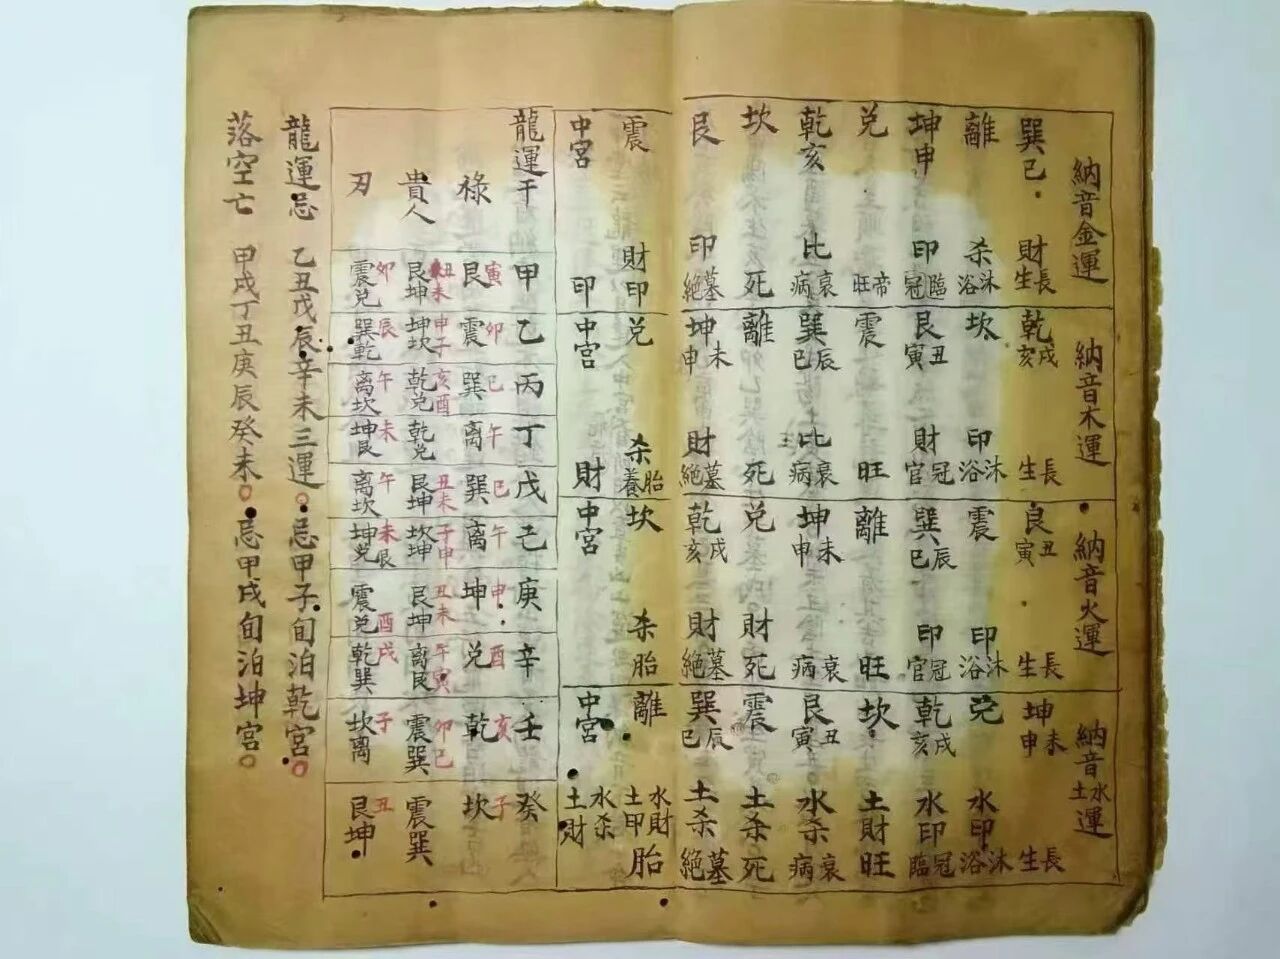 納音金運
巽巳 財 長生
離 杀 沐浴
坤申 印 臨冠
兑 帝旺
乾亥 比 衰病
坎 死
艮 印 墓絕
震 財印
中宮 印
納音木運
乾戌亥 長生
坎 印 沐浴
艮丑寅 財 冠官
震 旺
巽辰巳 比 衰病
離 死
坤未申 財 墓絕
兑 杀 胎養
中宮 財
納音火運
良丑寅 長生
震 印 沐浴
巽辰巳 印 冠官
離 旺
坤未申 衰病
兑 財 死
乾戌亥 財 墓絕
坎 杀 胎
中宮
納音水土運
坤未申 長生
兑 水印 沐浴
乾戌亥 水印 冠臨
坎 土財 旺
艮丑寅 水杀 衰病
震 土杀 死
巽辰巳 土杀 墓絕
離 水財土甲 胎
中宮 水杀土財
龍運干 祿 貴人 刃
甲 寅艮 丑未艮坤 卯震兑
乙 卯震 申子坤坎 辰巽乾
丙 巳巽 亥酉乾兑 午离坎
丁 午离 乾兑 未坤艮
戊 巳巽 丑未艮坤 午离坎
己 午离 子申坎坤 未辰坤兑
庚 申坤 丑未艮坤 酉震兑
辛 酉兑 午寅离艮 戌乾巽
壬 亥乾 卯巳震巽 子坎离
癸 子坎 震巽 丑艮坤
龍運忌 乙丑戊辰辛未三運 忌甲子旬泊乾宮
落空亡 甲戌丁丑庚辰癸未 忌甲戌旬泊坤宮